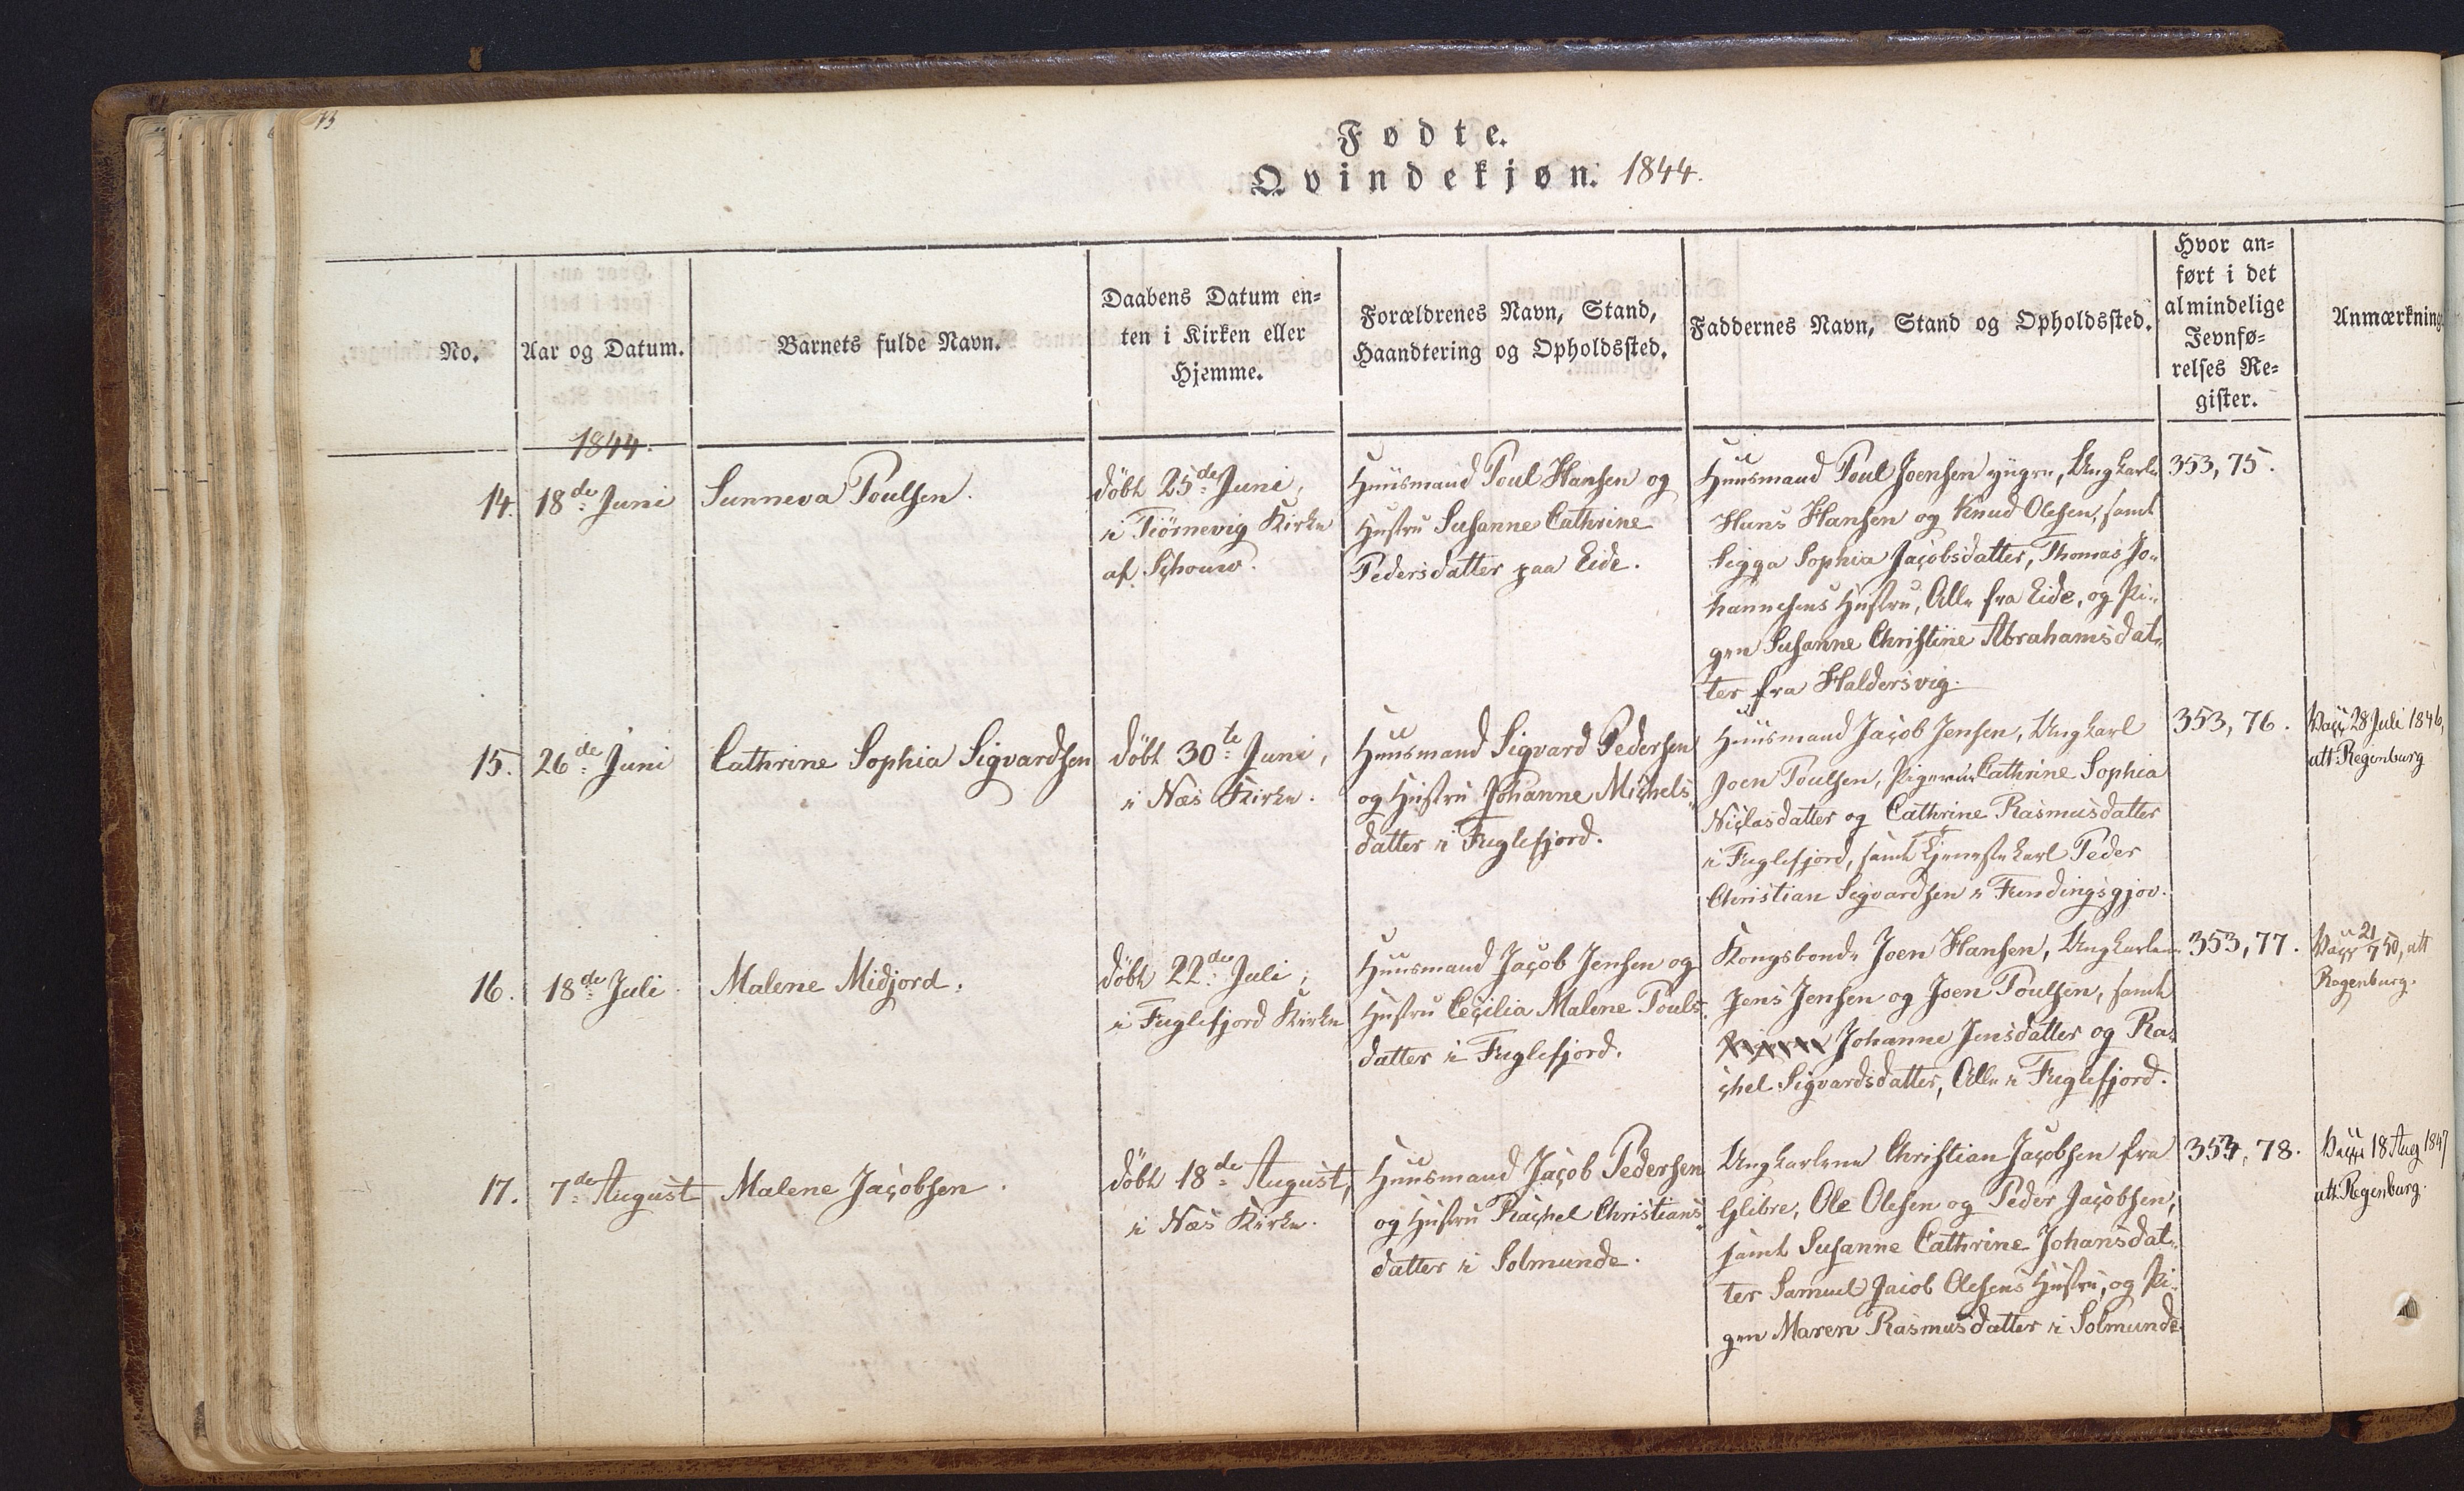 73
Fødte.
Qvindekjøn. 1844.
No.
Aar og Datum.
Barnets fulde Navn.
Daabens Datum en-
ten i Kirken eller
Hjemme.
Forældrenes Navn, Stand,
Haandtering og Opholdssted.
Faddernes Navn, Stand og Opholdssted.
Hvor an-
ført i det
almindelige
Jevnfø-
relses Re-
gister.
Anmærkning
1844.
14.
18de Juni
Sunneva Poulsen.
döbt 25de Juni,
i Tiörnevig Kirke
af Schouw.
Huusmand Poul Hansen og
Hustru Susanne Cathrine
Pedersdatter paa Eide.
Huusmand Poul Joensen yngre, Ungkarle
Hans Hansen og Knud Olesen, samt
Sigga Sophia Jacobsdatter, Thomas Jo-
hannesens Hustru, Alle fra Eide, og Pi-
gen Susanne Christine Abrahamsdat-
ter fra Haldersvig.
353, 75.
15.
26de Juni
Cathrine Sophia Sigvardsen
döbt 30te Juni,
i Næs Kirke.
Huusmand Sigvard Pedersen
og Hustru Johanne Michels-
datter i Fuglefjord.
Huusmand Jacob Jensen, Ungkarl
Joen Poulsen, Pigerne Cathrine Sophia
Niclasdatter og Cathrine Rasmusdatter
i Fuglefjord, samt Tjenestekarl Peder
Christian Sigvardsen i Fundingsgjov.
353, 76.
Vacc 28 Juli 1846,
att Regenburg
16.
18de Juli
Malene Midjord.
döbt 22de Juli,
i Fuglefjord Kirke
Huusmand Jacob Jensen og
Hustru Cecilia Malene Pouls-
datter i Fuglefjord.
Kongsbonde Joen Hansen, Ungkarlene
Jens Jensen og Joen Poulsen, samt
Johanne Jensdatter og Ra-
chel Sigvardsdatter, Alle i Fuglefjord.
353, 77.
Vacc 21/7 50, att
Regenburg.
17.
7de August
Malene Jacobsen.
döbt 18de August,
i Næs Kirke.
Huusmand Jacob Pedersen
og Hustru Rachel Christians-
datter i Solmunde.
Ungkarlene Christian Jacobsen fra
Glibre, Ole Olesen og Peder Jacobsen,
samt Susanne Cathrine Johansdat-
ter Samuel Jacob Olesens Hustru, og Pi-
gen Maren Rasmusdatter i Solmunde
353, 78.
Vacc 18 Aug 1847
att Regenburg.